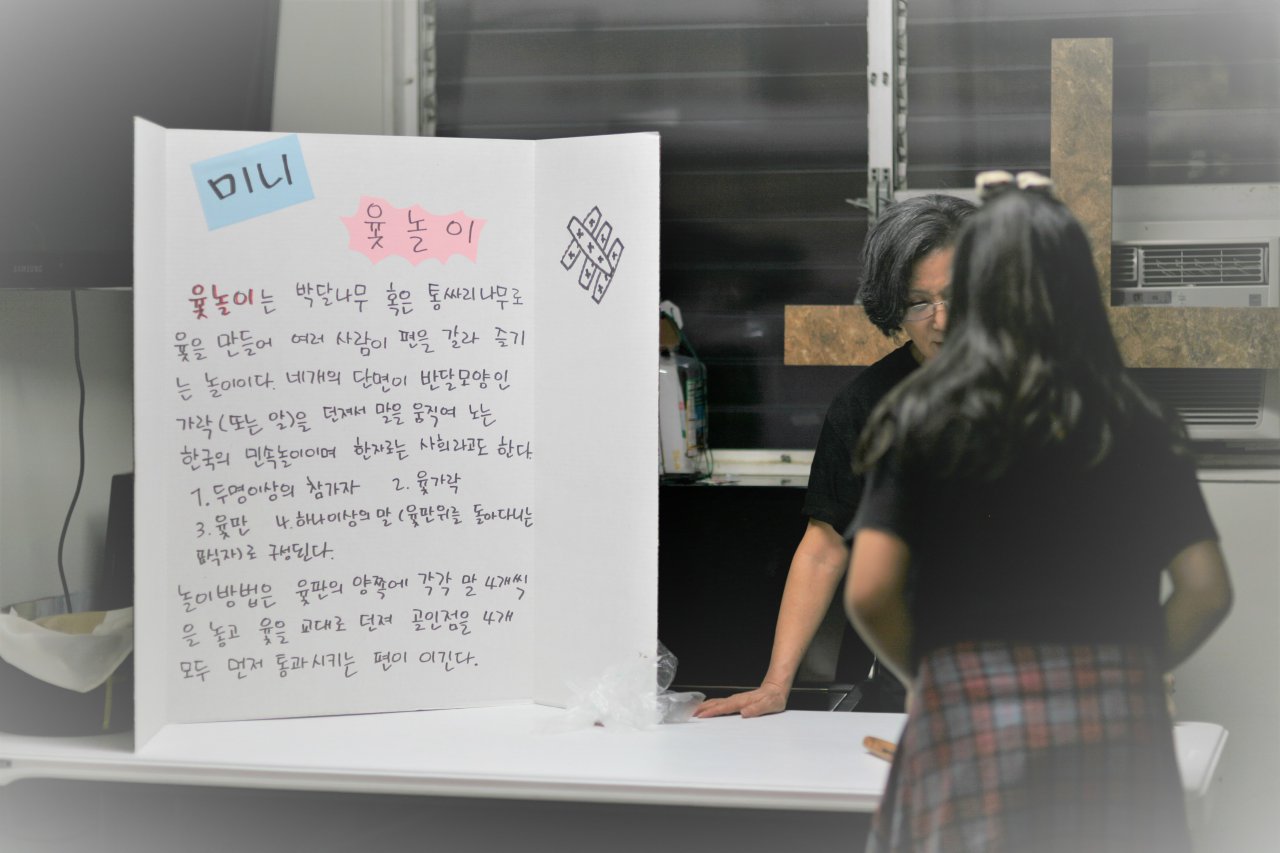 미니
윷놀이
윷놀이는 박달나무 혹은 통싸리나무로
윷을 만들어 여러 사람이 편을 갈라 즐기
는 놀이이다. 네개의 단면이 반달모양인
가락(또는 알)을 던져서 말을 움직여 노는
한국의 민속놀이이며 한자로는 사희라고도 한다.
1. 두명이상의 참가자 2. 윷가락
3. 윷판 4. 하나이상의 말 (윷판위를 돌아다니는
표식자)로 구성된다.
놀이방법은 윷판의 양쪽에 각각 말 4개씩
을 놓고 윷을 교대로 던져 골인점을 4개
모두 먼저 통과시키는 편이 이긴다.
SAMSUNG